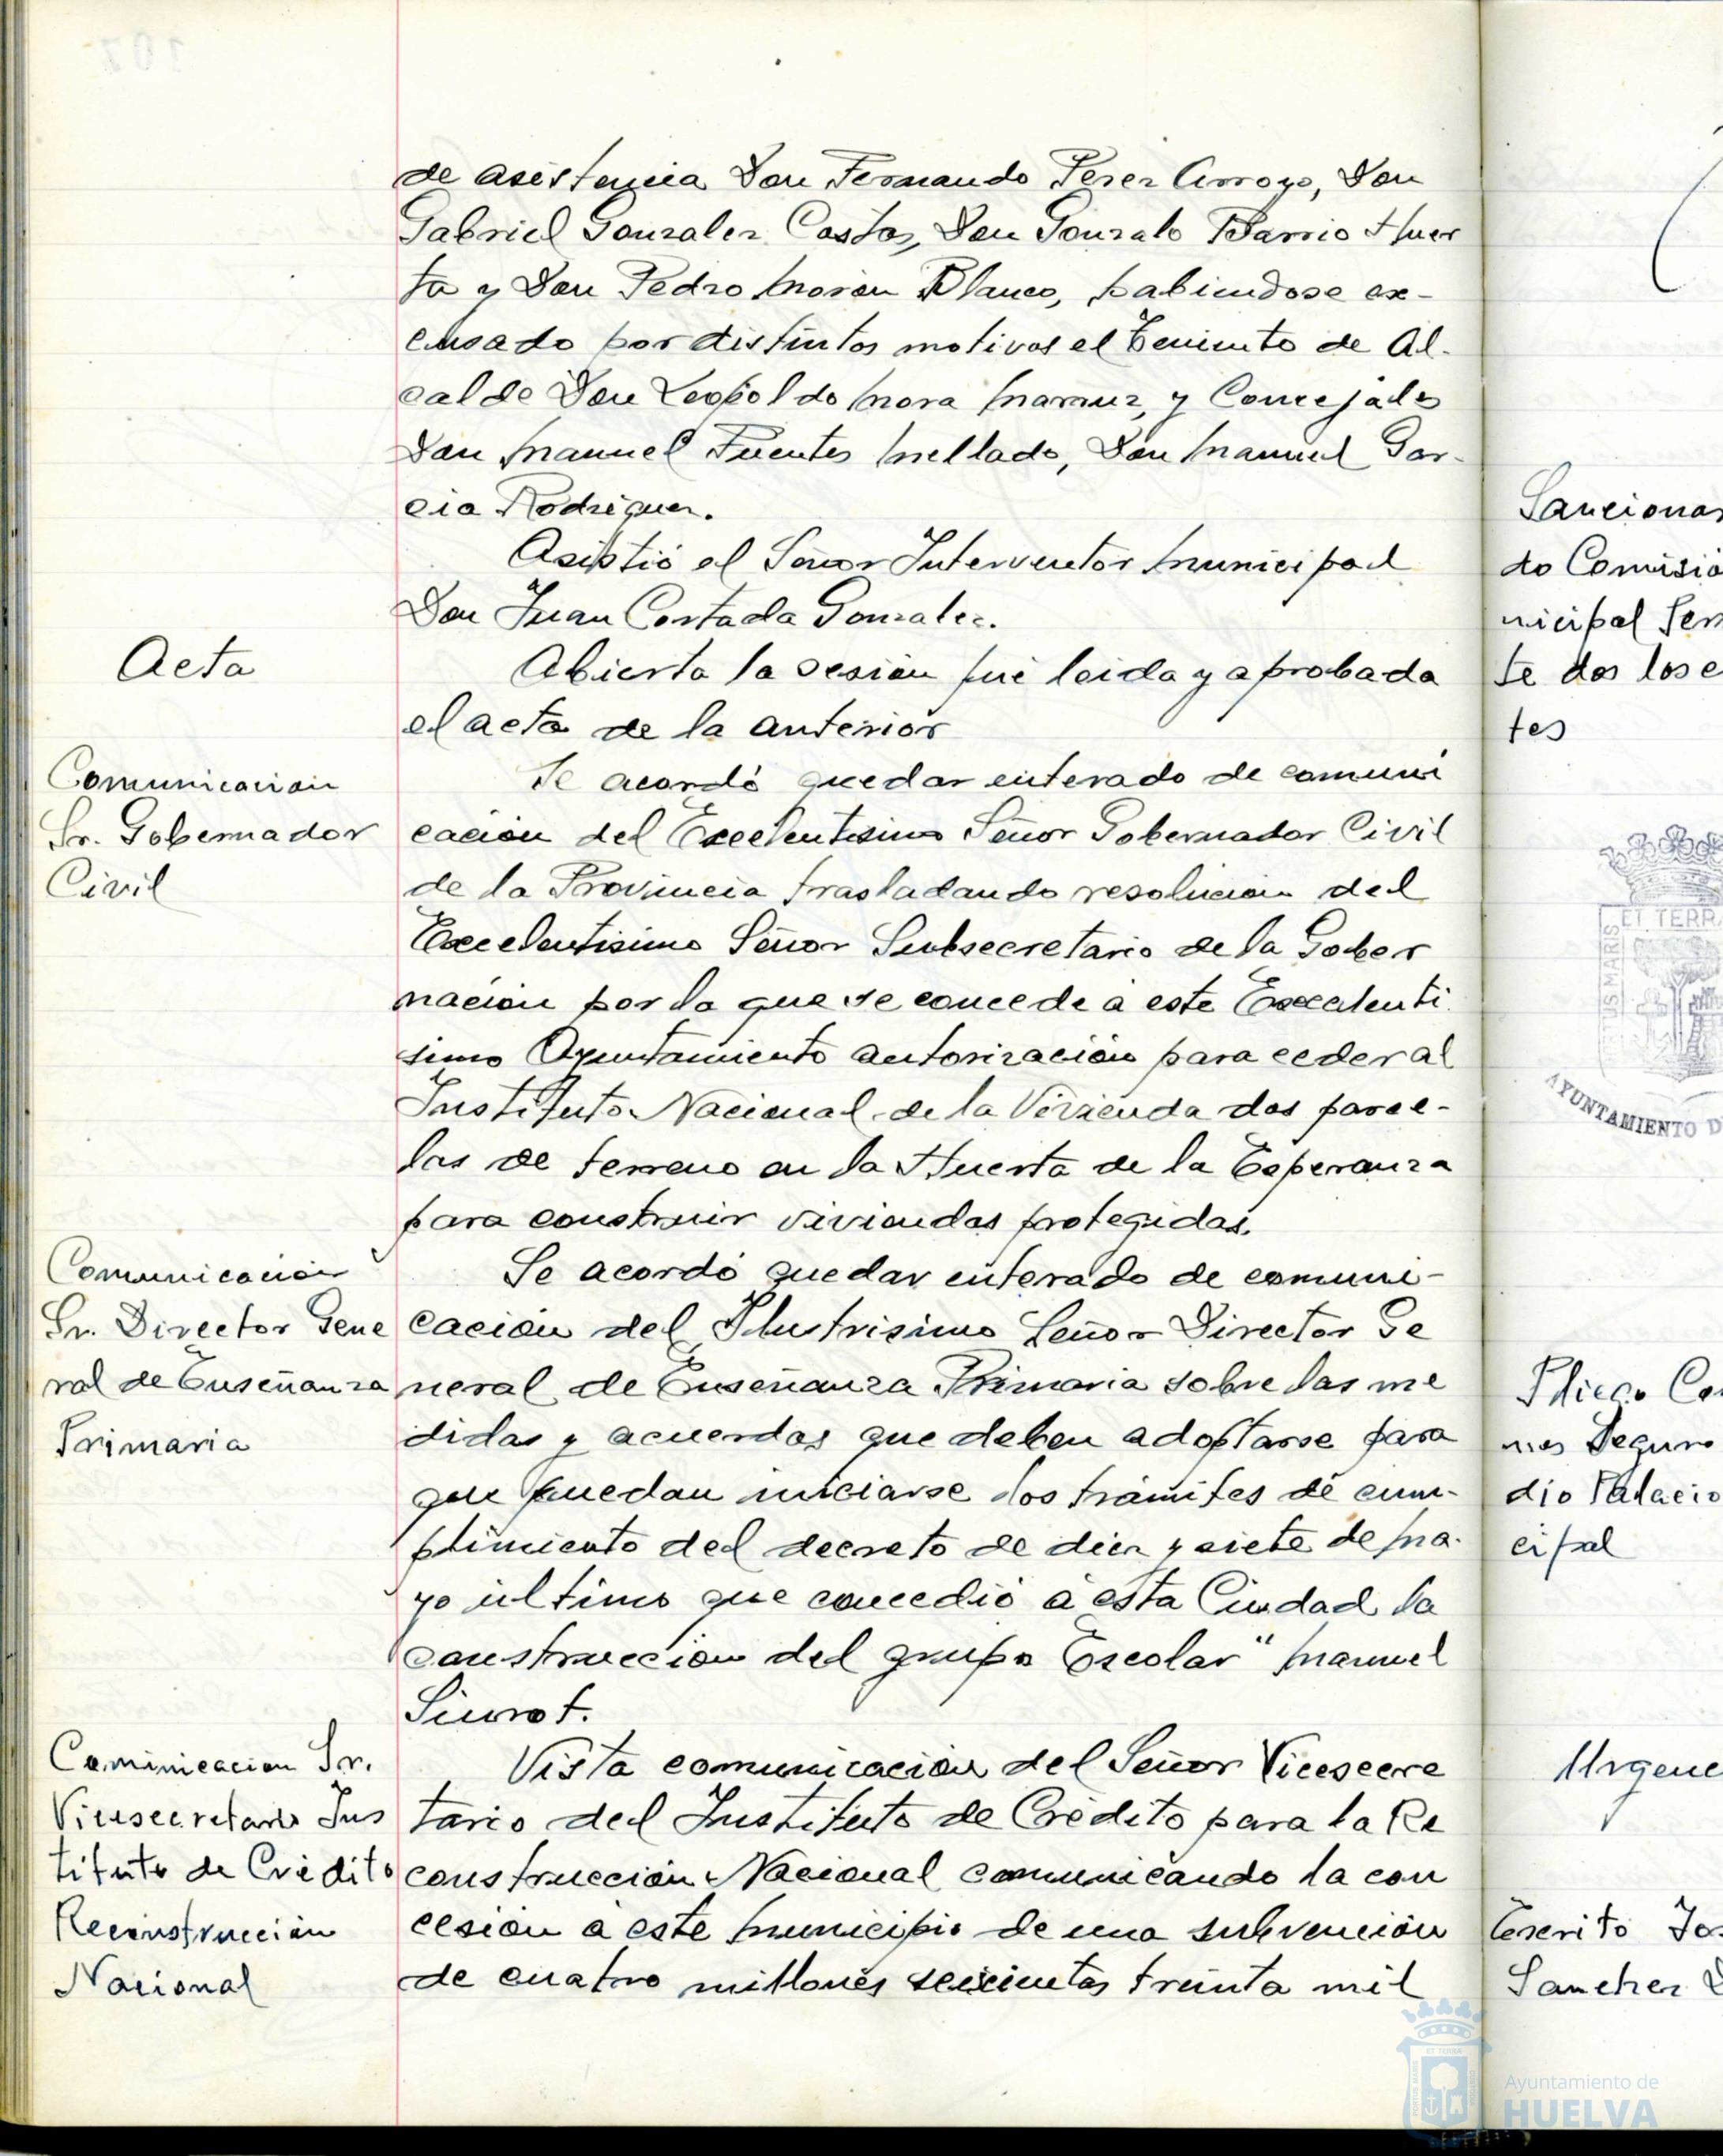 de asistencia Don Fernando Perez Arroyo, Don
Gabriel Gonzalez Costas, Don Gonzalo Barrio Huer
ta y Don Pedro Moron Blanco, habiendose ex-
cusado por distintos motivos el Teniente de Al-
calde Don Leopoldo Mora y Concejales
Don Manuel Fuentes Mellado, Don Manuel Gar-
cia Rodriguez.
Asistió el Señor Interventor Municipal
Don Juan Cortada Gonzalez.
Acta
Abierta la sesion fué leida y aprobada
el acta de la anterior
Comunicacion
Sr. Gobernador
Civil
Se acordó quedar enterado de comuni
cación del Excelentisimo Señor Gobernador Civil
de la Provincia trasladando resolucion del
Excelentisimo Señor Subsecretario de la Gober
nación por la que se concede á este Excelenti
simo Ayuntamiento autorización para ceder al
Instituto Nacional de la Vivienda dos parce-
las de terreno en la Huerta de la Esperanza
para construir viviendas protegidas.
Comunicación
Sr. Director Gene
ral de Enseñanza
Primaria
Se acordó quedar enterado de comuni-
cación del Ilustrisimo Señor Director Ge
neral de Enseñanza Primaria sobre las me
didas y acuerdos que deben adoptarse para
que puedan iniciarse los trámites de cum-
plimiento del decreto de diez y siete de Ma-
yo último que concedió á esta Ciudad la
construccion del grupo Escolar "Manuel
Siurot.
Cominicacion Sr.
Vicesecretario Ins
tituto de Crédito
Reconstrucción
Nacional
Vista comunicación del Señor Vicesecre
tario del Instituto de Crédito para la Re
construcción Nacional comunicando la con
cesión á este Municipio de una subvención
de cuatro millones seiscientas treinta mil
Sancionar
do Comisió
nicipal Per
te dos los e
tes
ET TERRA
US MARIS
AYUNTAMIENTO D
Pliego Co
nes Seguro
dio Palacio
cipal
Urgenc
Escrito Jos
Sanchez D
Ayuntamiento de
HUELVA